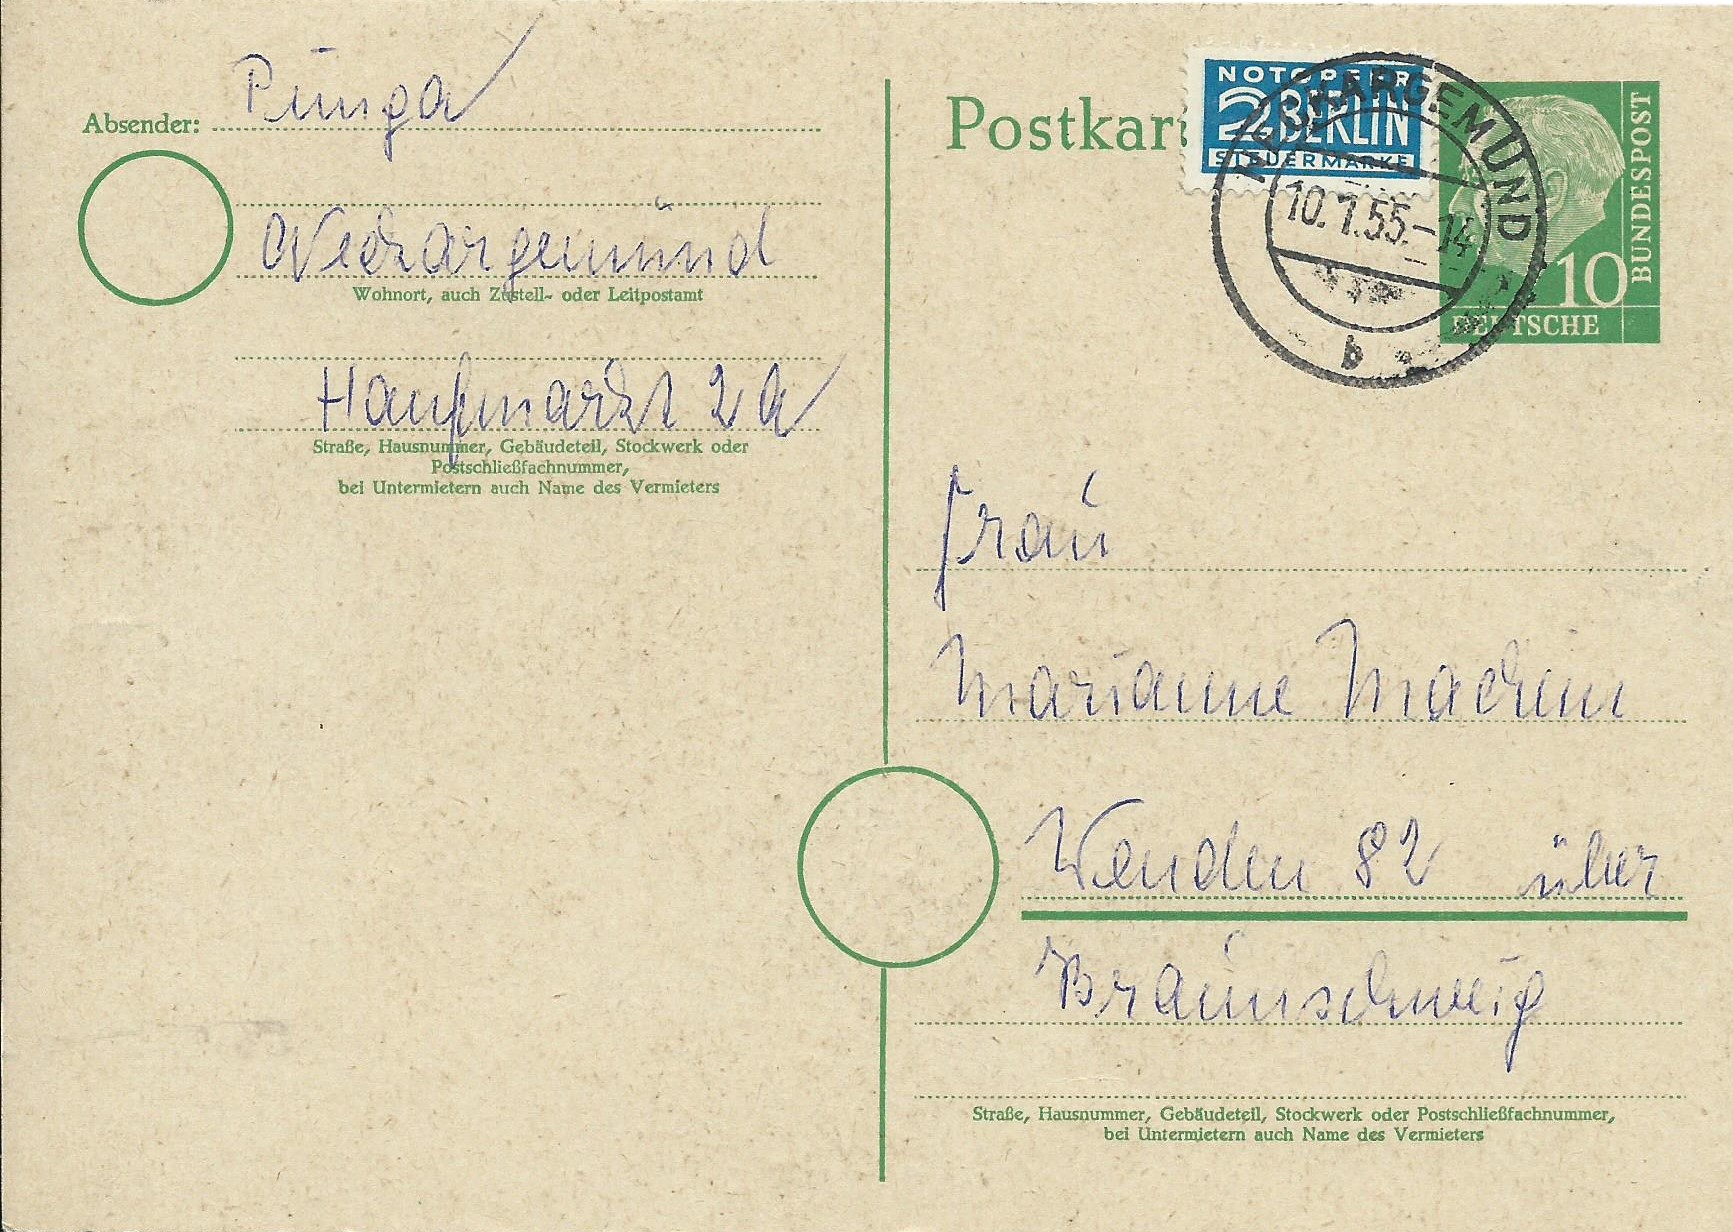 Absender: Punga
Neckargemünd
Wohnort, auch Zustell- oder Leitpostamt
Hanfmarkt 2a
Straße, Hausnummer, Gebäudeteil, Stockwerk oder
Postschließfachnummer,
bei Untermietern auch Name des Vermieters
Postkar
NOTOPFER
2 BERLIN
STEUERMARKE
NECKARGEMÜND
10.1.55.-14
b
10
BUNDESPOST
DEUTSCHE
Frau
Marianne
Wenden 82 über
Braunschweig
Straße, Hausnummer, Gebäudeteil, Stockwerk oder Postschließfachnummer,
bei Untermietern auch Name des Vermieters